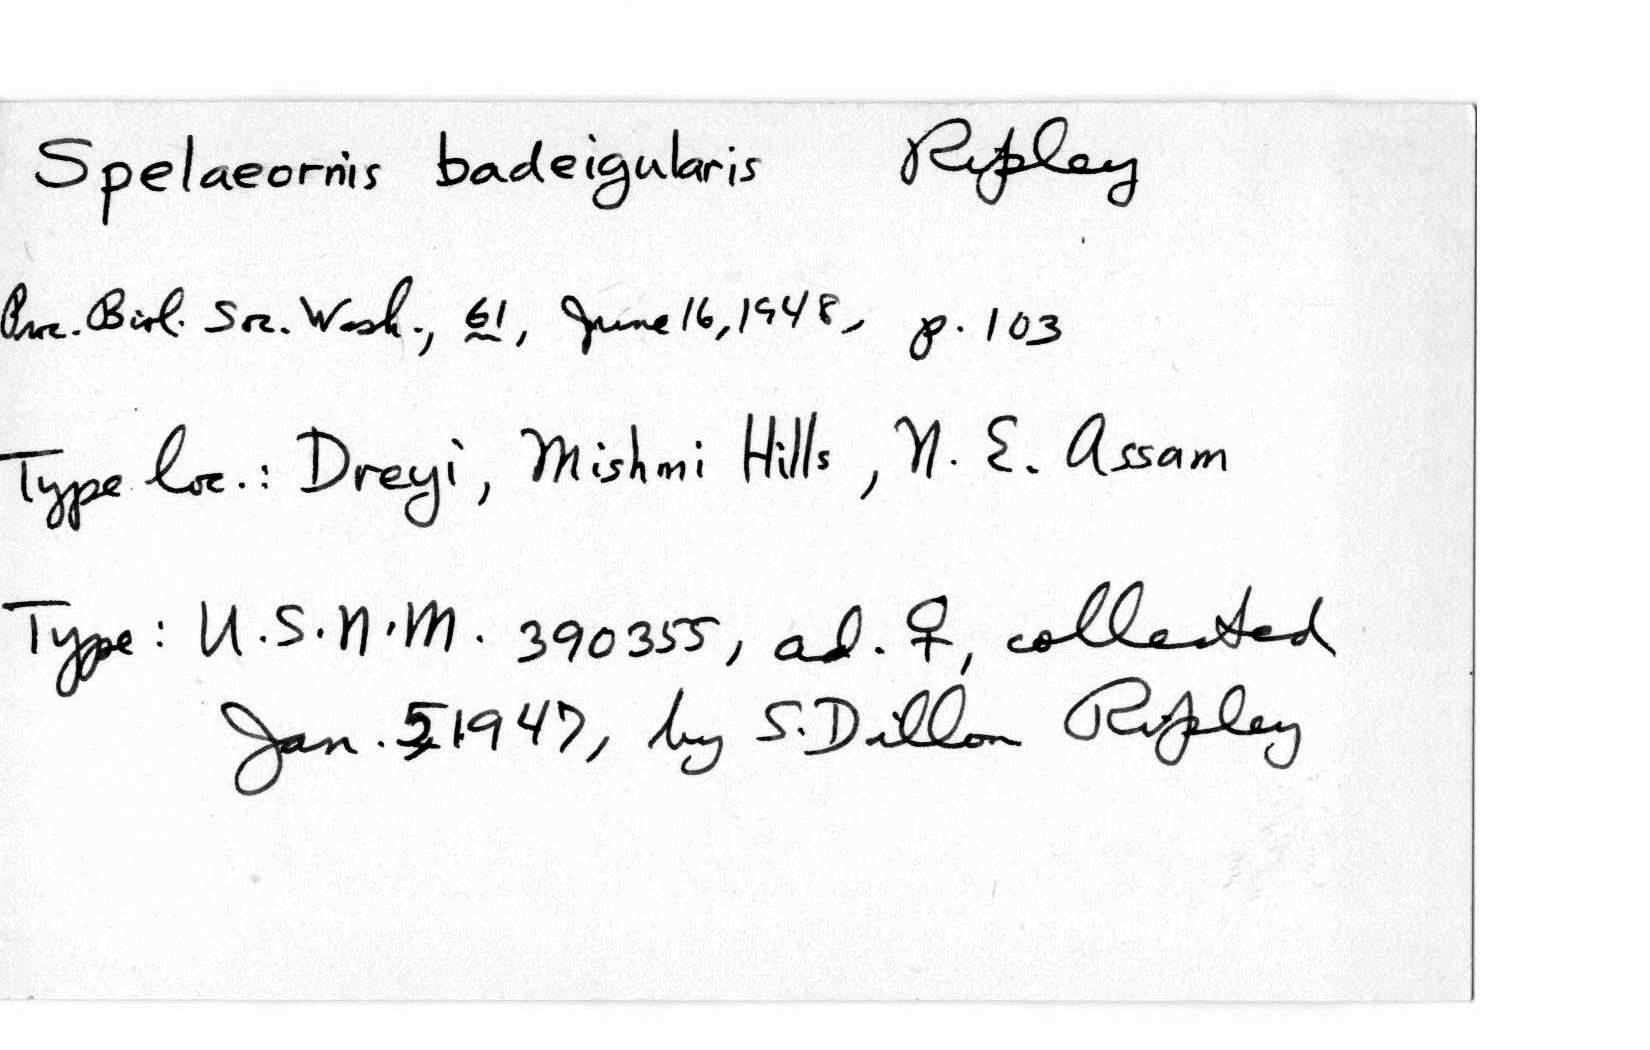 Spelaeornis badeigularis Ripley
Proc. Biol. Soc. Wash., 61, June 16, 1948, p. 103
Type loc.: Dreyi, Mishmi Hills, N. E. Assam
Type: U.S.N.M. 390355, ad. ♀, collected
Jan. 5, 1947, by S. Dillon Ripley